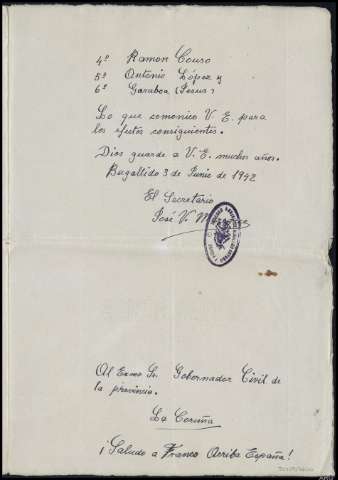 4º Ramon Couso
5º Antonio López y
6º Garaboa (Jesus)
Lo que comonico V. E. para
los efectos consiguientes.
Dios guarde a V. E. muchos años.
Bugallido 3 de Junio de 1942
El Secretario
José V. M
Al Exmo Sr. Gobernador Civil de
la provincia.
La Coruña
¡Saludo a Franco Arriba España!